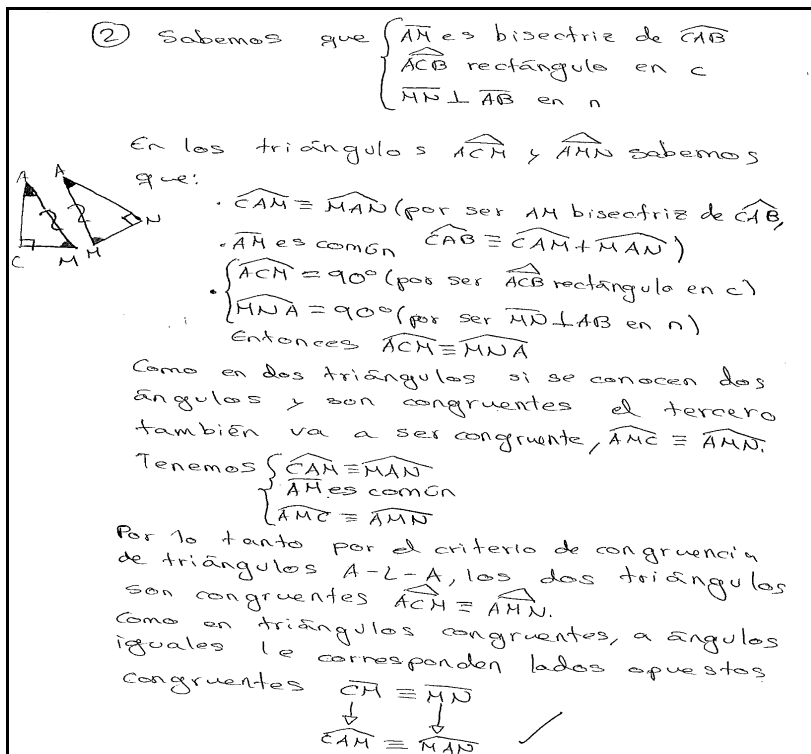 ② Sabemos que { AM es bisectriz de CAB
ACB rectángulo en c
MN ⊥ AB en n
En los triángulos ACM y AMN sabemos
que:
A A
N
C M M
· CAM ≡ MAN (por ser AM bisectriz de CAB,
· AM es común CAB ≡ CAM + MAN)
· { ACM = 90° (por ser ACB rectángulo en c)
MNA = 90° (por ser MN ⊥ AB en n)
Entonces ACM ≡ MNA
Como en dos triángulos si se conocen dos
ángulos y son congruentes el tercero
también va a ser congruente, AMC ≡ AMN.
Tenemos { CAM ≡ MAN
AM es común
AMC ≡ AMN
Por lo tanto por el criterio de congruencia
de triángulos A-L-A, los dos triángulos
son congruentes ACM ≡ AMN.
Como en triángulos congruentes, a ángulos
iguales le corresponden lados opuestos
congruentes CM ≡ MN
↓ ↓
CAM ≡ MAN ✓